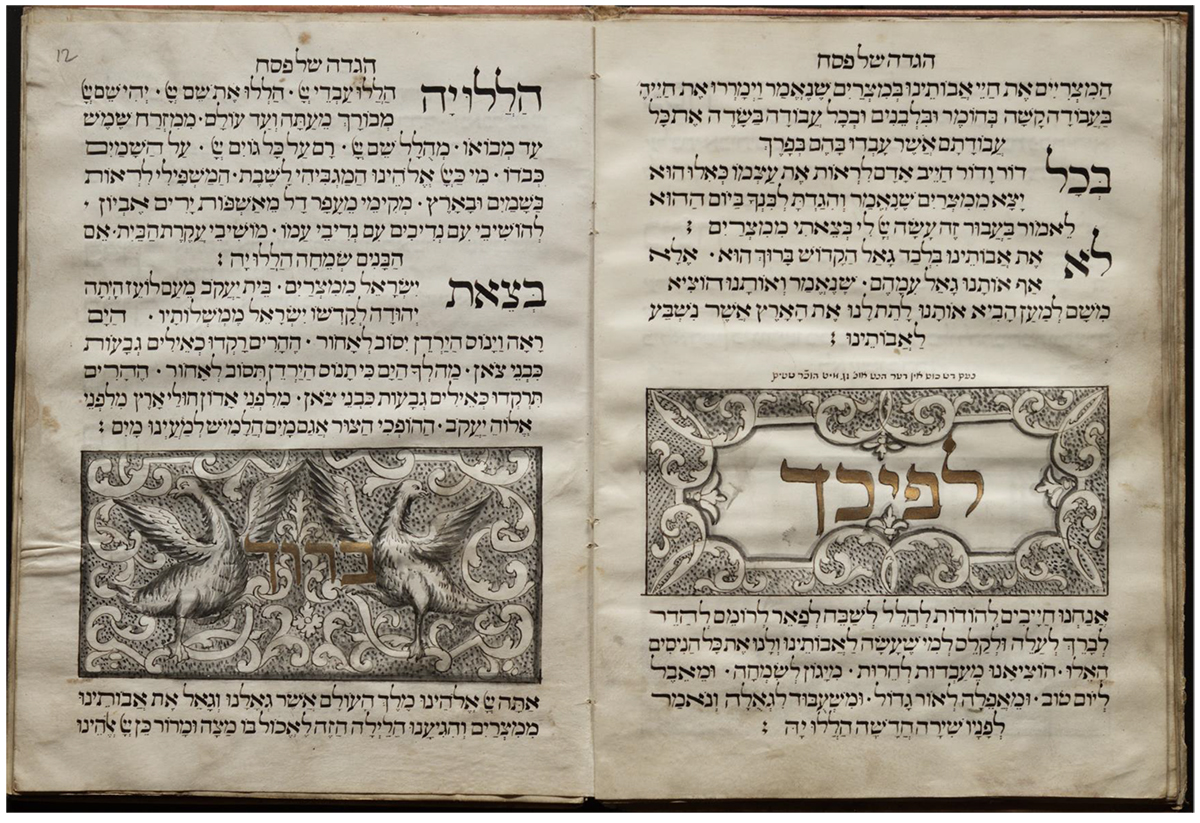 הגדה של פסח
המצריים את חיי אבותינו במצרים שנאמר וימררו את חייהם
בעבודה קשה בחומר ובלבנים ובכל עבודה בשדה את כל
עבודתם אשר עבדו בהם בפרך
בכל דור ודור חייב אדם לראות את עצמו כאלו הוא
יצא ממצרים שנאמר והגדת לבנך ביום ההוא
לאמור בעבור זה עשה יי לי בצאתי ממצרים :
לא את אבותינו בלבד גאל הקדוש ברוך הוא · אלא
אף אותנו גאל עמהם · שנאמר ואותנו הוציא
משם למען הביא אותנו לתת לנו את הארץ אשר נשבע
לאבותינו :
דש כוס אין דער הנט אונ' זג מיט הוכר שטים
לפיכך
אנחנו חייבים להודות להלל לשבח לפאר לרומם להדר
לברך לעלה ולקלס למי שעשה לאבותינו ולנו את כל הניסים
האלו · הוציאנו מעבדות לחרות · מיגון לשמחה · ומאבל
ליום טוב · ומאפלה לאור גדול · ומשעבוד לגאלה ונאמר
לפניו שירה חדשה הללויה :
12
הגדה של פסח
הללויה הללו עבדי יי · הללו את שם יי · יהי שם יי
מבורך מעתה ועד עולם · ממזרח שמש
עד מבואו · מהולל שם יי · רם על כל גוים יי · על השמים
כבדו · מי כיי אלהינו המגביהי לשבת · המשפילי לראות
בשמים ובארץ · מקימי מעפר דל מאשפות ירים אביון ·
להושיבי עם נדיבים עם נדיבי עמו · מושיבי עקרת הבית · אם
הבנים שמחה הללויה :
בצאת ישראל ממצרים · בית יעקב מעם לועז היתה
יהודה לקדשו ישראל ממשלותיו · הים
ראה וינוס הירדן יסוב לאחור · ההרים רקדו כאילים גבעות
כבני צאן · מה לך הים כי תנוס הירדן תסוב לאחור · ההרים
תרקדו כאילים גבעות כבני צאן · מלפני אדון חולי ארץ מלפני
אלוה יעקב · ההופכי הצור אגם מים חלמיש למעינו מים :
ברוך
אתה יי אלהינו מלך העולם אשר גאלנו וגאל את אבותינו
ממצרים והגיענו הלילה הזה לאכול בו מצה ומרור כן יי אלהינו